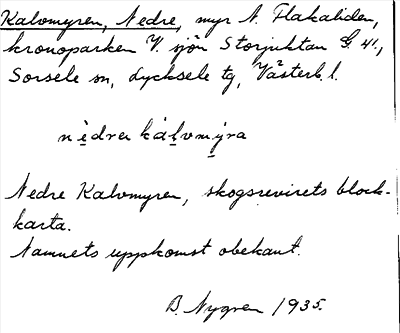 Kalvmyren, Nedre, myr N. Flakaliden,
kronoparken V. sjön Storjuktan G. 41,
Sorsele sn, Lycksele tg, Västerb. l.
nèdrer kálvmỳra
Nedre Kalvmyren, skogsrevirets block-
karta.
Namnets uppkomst obekant.
B. Nygren 1935.